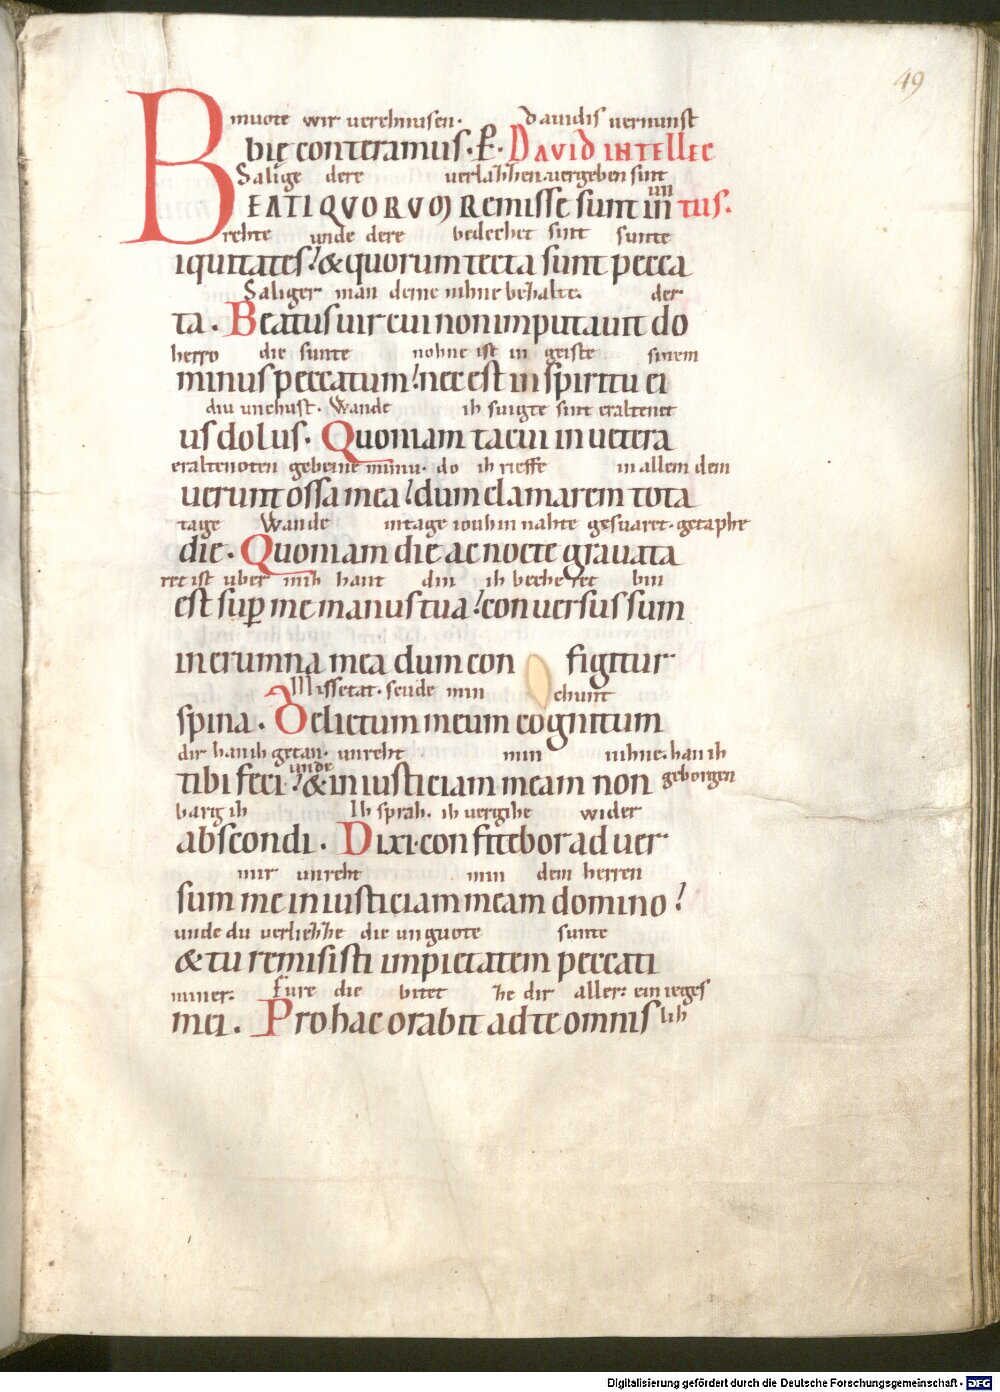 49
muote wir verchnusen. Dauidis uernunst
bię conteramus. P. DAVID INTELLEC
Salige dere verlahhen.vergeben sint
BEATI QVORVM Remisse sunt in tus.
un
rehte unde dere bedechet sint sunte
iquitates? & quorum tecta sunt pecca
Saliger man deme nihne behalte. der
ta. Beatus uir cui non imputauit do
herro die sunte nohne ist in geiste sinem
minus peccatum? nec est in spiritu ei
diu unchust. Wande ih suigte sint eraltenet
us dolus. Quoniam tacui inuetera
eraltenoten gebeine minu. do ih rieffe in allem dem
uerunt ossa mea? dum clamarem tota
tage Wande intage iouhin nahte gesuaret. getaphe
die. Quoniam die ac nocte grauata
ret ist uber mih hant din ih becheret bin
est sup me manus tua? conuersus sum
in erumna mea dum con figitur
Missetat. scude min chunt
spina. Delictum meum cognitum
dir han ih getan. unreht min nihne. han ih
unde
tibi feci? & iniusticiam meam non geborgen
barg ih Ih sprah. ih vergihe wider
abscondi. Dixi. confitebor aduer
mir unreht min dem herren
sum me iniusticiam meam domino?
unde du verliehhe die unguote sunte
& tu remisisti impietatem peccati
miner. Fure die bitet he dir aller: ein ieges
mei. Pro hac orabit ad te omnis lih
Digitalisierung gefördert durch die Deutsche Forschungsgemeinschaft - DFG